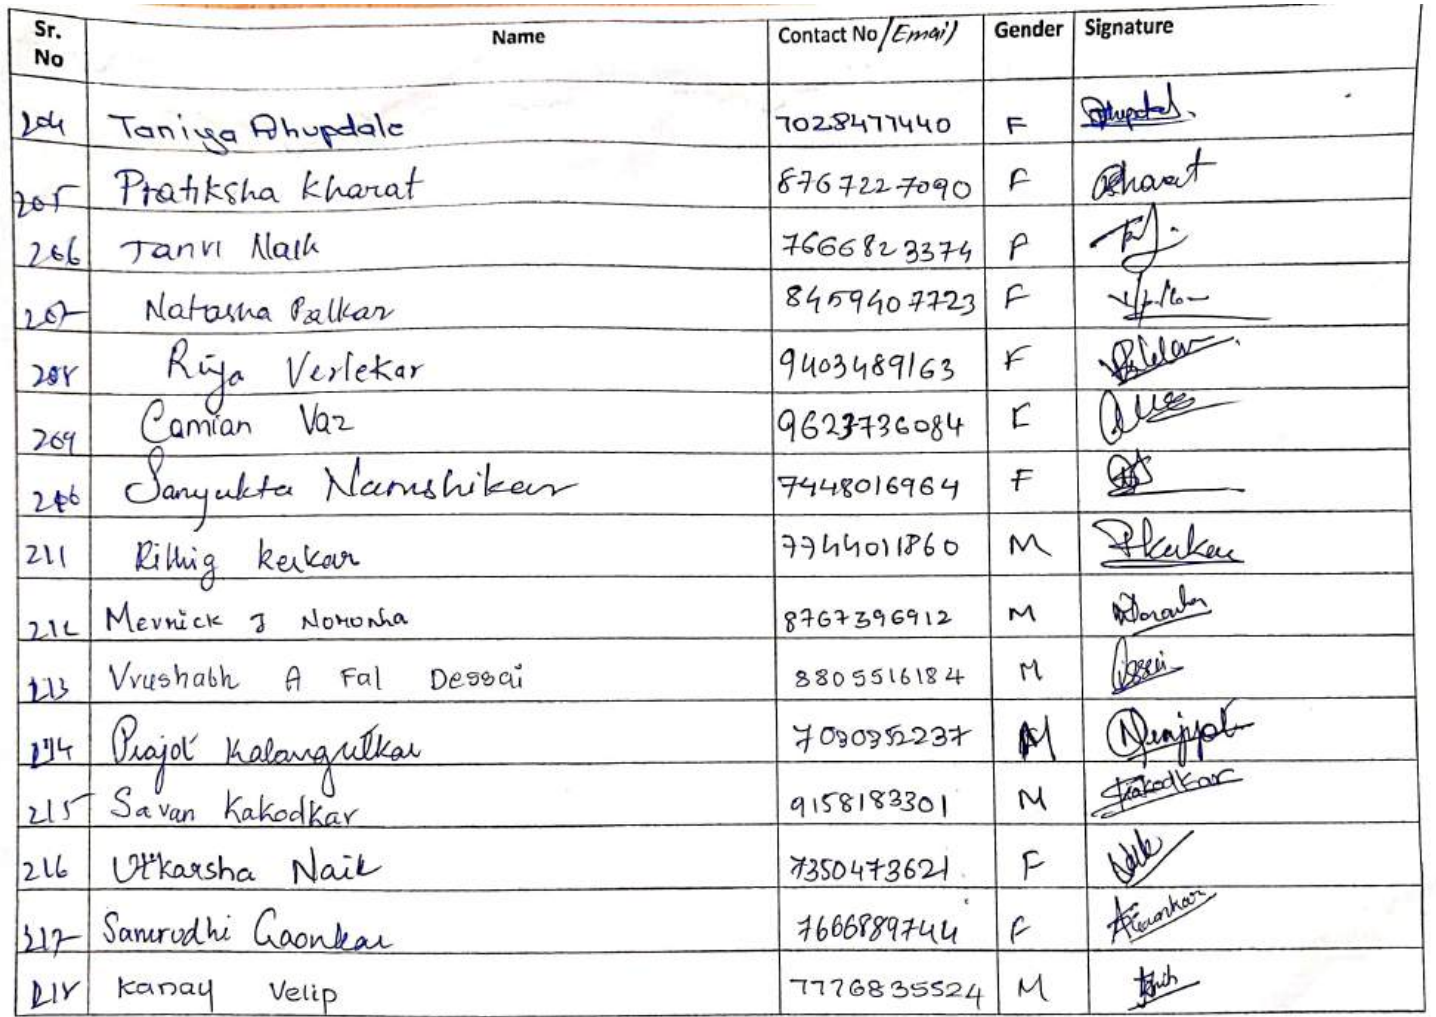 Sr. No Name Contact No/Email Gender Signature
204 Taniya Dhupdale 7028477440 F Dhupdal.
205 Pratiksha Kharat 8767227090 F Kharat
206 Tanvi Naik 7666823374 F
207 Natasha Palkar 8459407723 F
208 Rija Verlekar 9403489163 F
209 Camian Vaz 9623736084 F
210 Sanyukta Narvshikar 7448016964 F
211 Kerkar 7744011860 M
212 Mevrick J Noronha 8767396912 M Noronha
213 Vrushabh A Fal Dessai 8805516184 M Dessai
214 Prajot Kalangutkar 7030352237 M
215 Savan Kakodkar 9158183301 M Kakodkar
216 Utkarsha Naik 7350473621 F Naik
217 Samrudhi Gaonkar 7666889744 F Gaonkar
218 Kanay Velip 7776835524 M